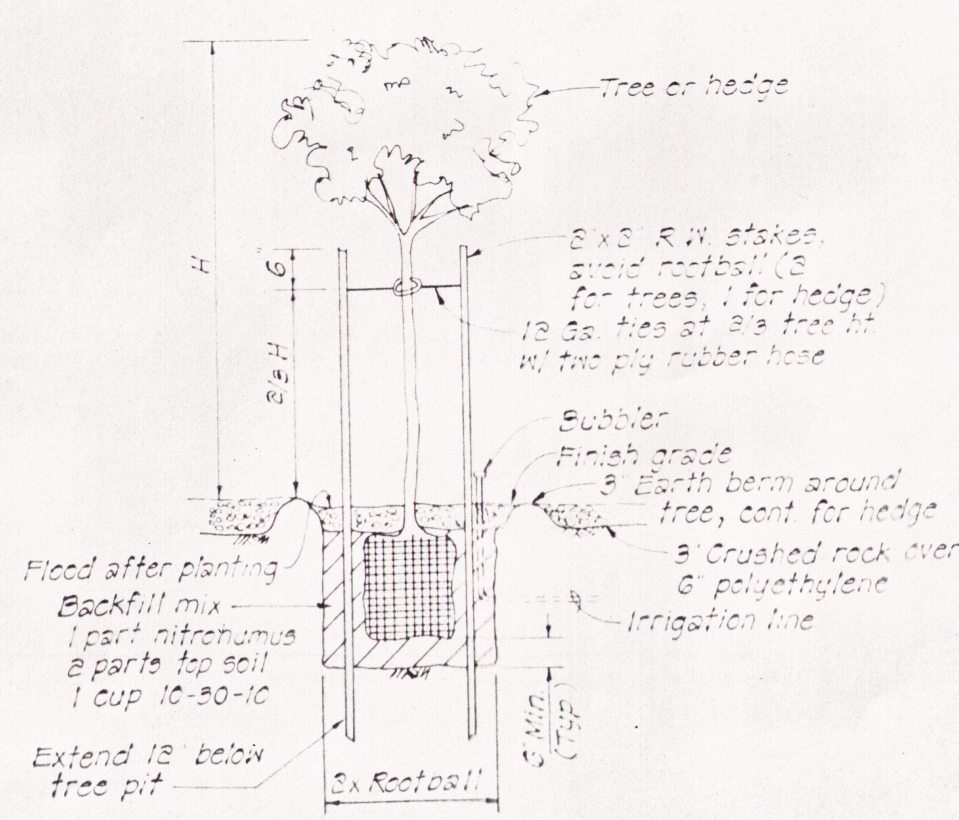 Tree or hedge
H
6"
2/3 H
2"x2" R.W. stakes,
avoid rootball (2
for trees, 1 for hedge)
12 Ga. ties at 2/3 tree ht.
w/ two ply rubber hose
Bubbler
Finish grade
3" Earth berm around
tree, cont. for hedge
3" Crushed rock over
6" polyethylene
Irrigation line
Flood after planting
Backfill mix
1 part nitrohumus
2 parts top soil
1 cup 10-30-10
Extend 12" below
tree pit
2x Rootball
6" Min.
(Typ)